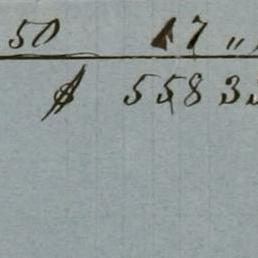 50 17 "
$ 558 3